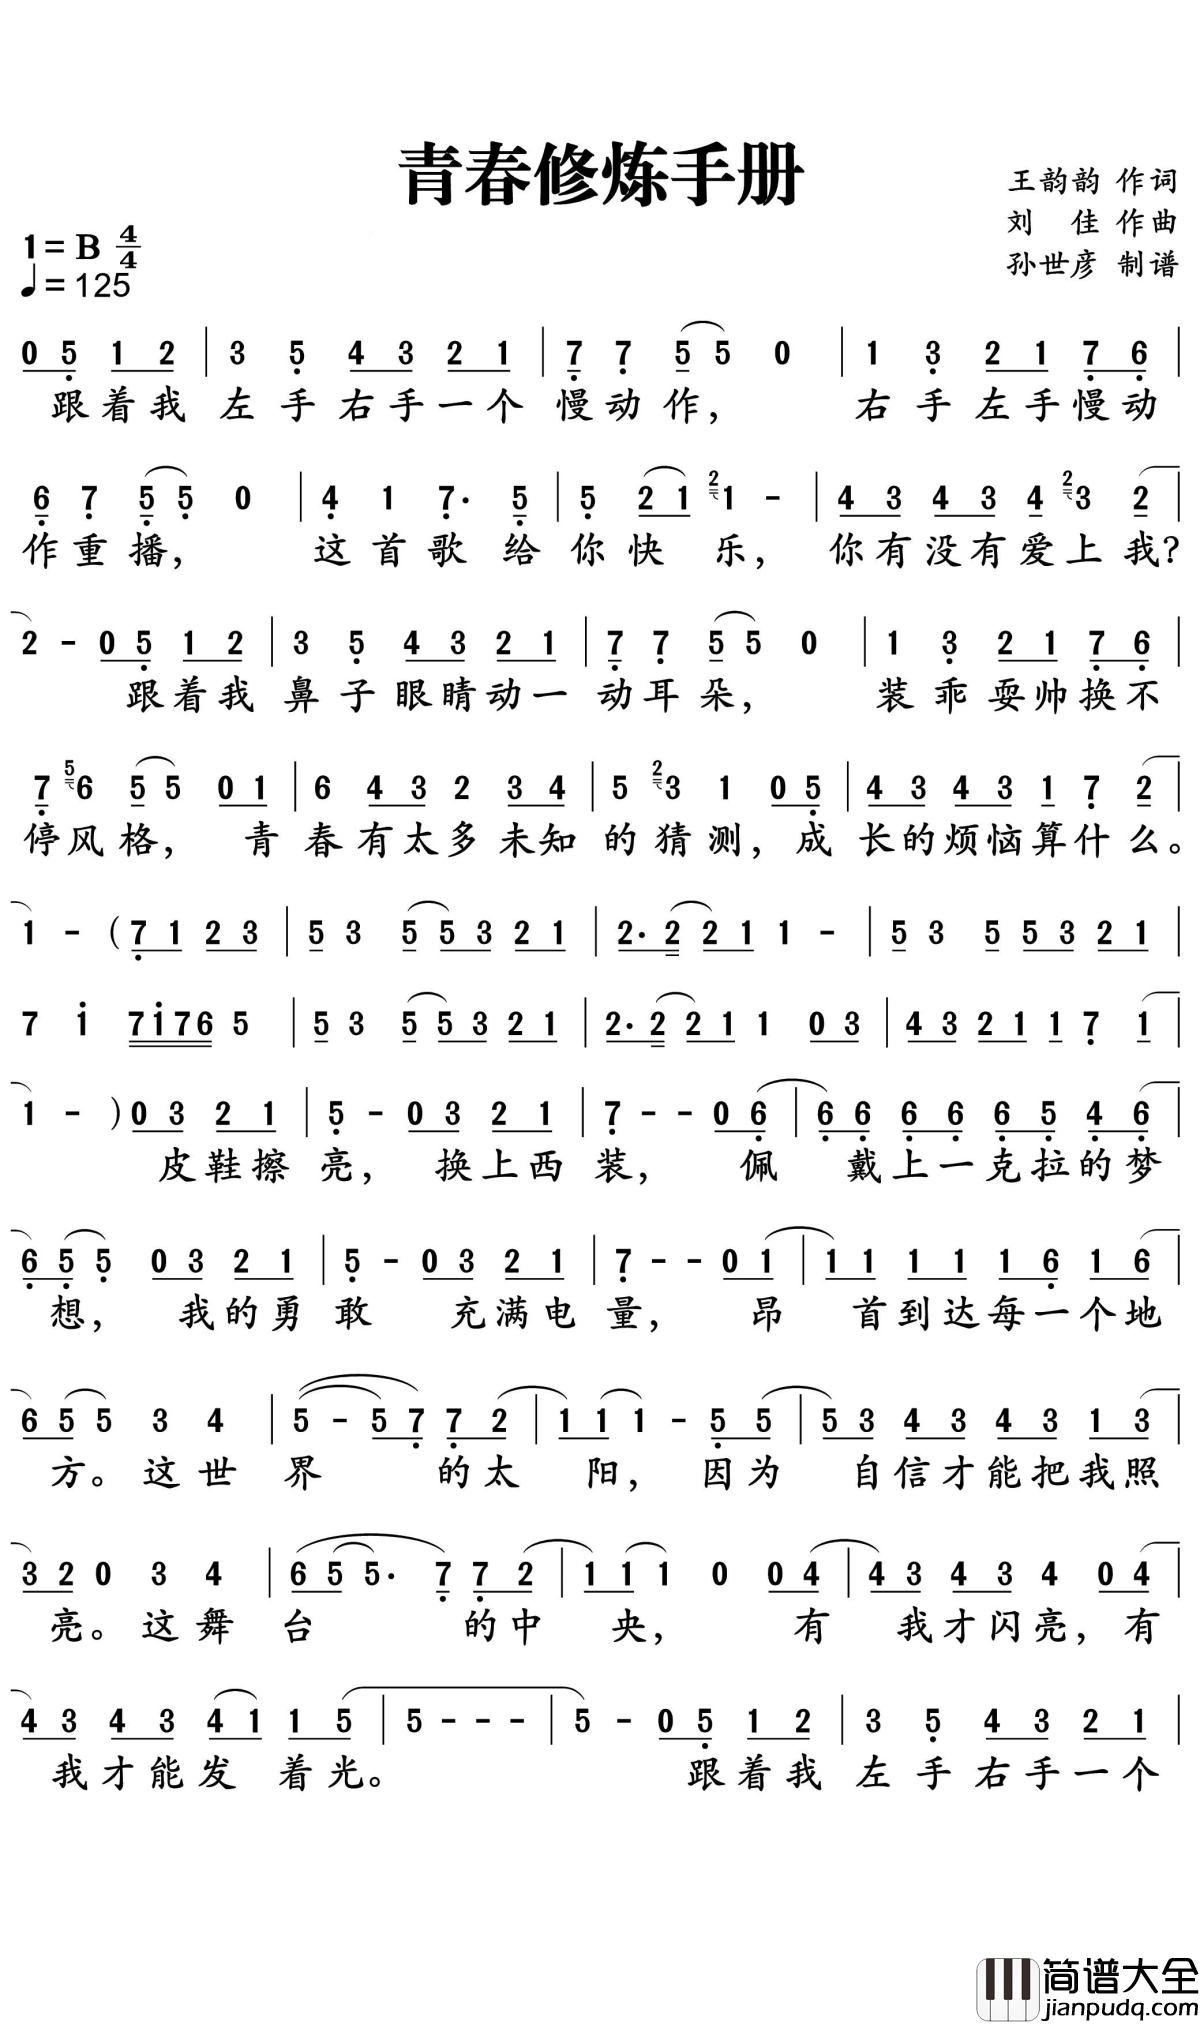 青春修炼手册
王韵韵 作词
刘 佳 作曲
孙世彦 制谱
1= B 4/4
♩= 125
0 5 1 2 | 3 5 4 3 2 1 | 7 7 5 5 0 | 1 3 2 1 7 6 |
跟着我 左手右手一个 慢动作， 右手左手慢动
6 7 5 5 0 | 4 1 7· 5 | 5 2 1 2 1 - | 4 3 4 3 4 2 3 2 |
作重播， 这首歌给 你快 乐， 你有没有爱上我？
2 - 0 5 1 2 | 3 5 4 3 2 1 | 7 7 5 5 0 | 1 3 2 1 7 6 |
跟着我 鼻子眼睛动一 动耳朵， 装乖耍帅换不
7 5 6 5 5 0 1 | 6 4 3 2 3 4 | 5 2 3 1 0 5 | 4 3 4 3 1 7 2 |
停风格， 青 春有太多未知 的猜测，成 长的烦恼算什么。
1 - ( 7 1 2 3 | 5 3 5 5 3 2 1 | 2· 2 2 1 1 - | 5 3 5 5 3 2 1 |
7 i 7 i 7 6 5 | 5 3 5 5 3 2 1 | 2· 2 2 1 1 0 3 | 4 3 2 1 1 7 1 |
1 - ) 0 3 2 1 | 5 - 0 3 2 1 | 7 - - 0 6 | 6 6 6 6 6 5 4 6 |
皮鞋擦 亮， 换上西 装， 佩 戴上一克拉的梦
6 5 5 0 3 2 1 | 5 - 0 3 2 1 | 7 - - 0 1 | 1 1 1 1 1 6 1 6 |
想， 我的勇 敢 充满电 量， 昂 首到达每一个地
6 5 5 3 4 | 5 - 5 7 7 2 | 1 1 1 - 5 5 | 5 3 4 3 4 3 1 3 |
方。这世 界 的太 阳， 因为 自信才能把我照
3 2 0 3 4 | 6 5 5· 7 7 2 | 1 1 1 0 0 4 | 4 3 4 3 4 0 4 |
亮。这舞 台 的中 央， 有 我才闪亮，有
4 3 4 3 4 1 1 5 | 5 - - - | 5 - 0 5 1 2 | 3 5 4 3 2 1 |
我才能发 着光。 跟着我 左手右手一个
简谱大全
jianpudq.com